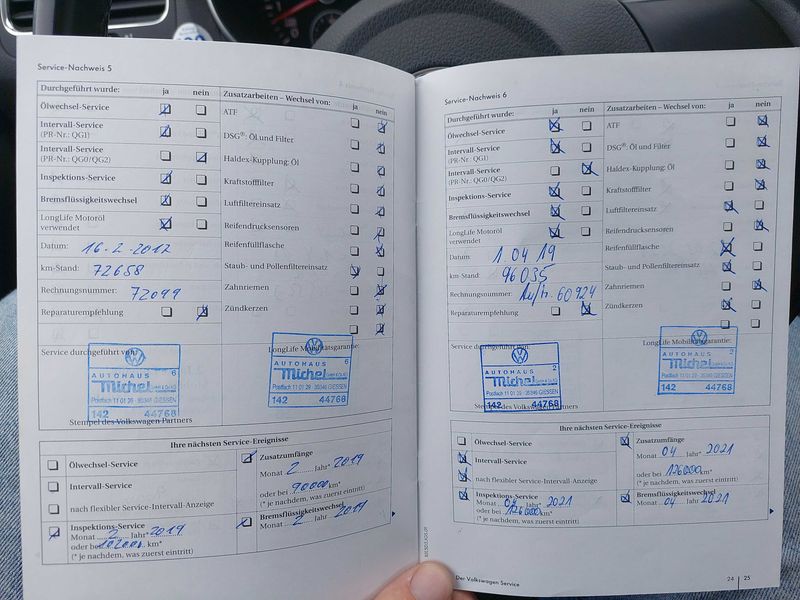 Service-Nachweis 5
Durchgeführt wurde: ja nein
Ölwechsel-Service
Intervall-Service
(PR-Nr.: QG1)
Intervall-Service
(PR-Nr.: QG0/QG2)
Inspektions-Service
Bremsflüssigkeitswechsel
LongLife Motoröl
verwendet
Datum: 16-2-2017
km-Stand: 72658
Rechnungsnummer: 72099
Reparaturempfehlung
Zusatzarbeiten – Wechsel von: ja nein
ATF
DSG®: Öl und Filter
Haldex-Kupplung: Öl
Kraftstofffilter
Luftfiltereinsatz
Reifendrucksensoren
Reifenfüllflasche
Staub- und Pollenfiltereinsatz
Zahnriemen
Zündkerzen
Service durchgeführt von:
AUTOHAUS 6
Michel
Postfach 11 01 29 · 35346 GIESSEN
142 44768
Stempel des Volkswagen Partners
LongLife Mobilitätsgarantie:
AUTOHAUS 6
Michel
Postfach 11 01 29 · 35346 GIESSEN
142 44768
Ihre nächsten Service-Ereignisse
Ölwechsel-Service
Intervall-Service
nach flexibler Service-Intervall-Anzeige
Inspektions-Service
Monat 2 Jahr* 2019
oder bei 102000 km*
(* je nachdem, was zuerst eintritt)
Zusatzumfänge
Monat 2 Jahr* 2019
oder bei 90000 km*
(* je nachdem, was zuerst eintritt)
Bremsflüssigkeitswechsel
Monat 2 Jahr 2019
Service-Nachweis 6
Durchgeführt wurde: ja nein
Ölwechsel-Service
Intervall-Service
(PR-Nr.: QG1)
Intervall-Service
(PR-Nr.: QG0/QG2)
Inspektions-Service
Bremsflüssigkeitswechsel
LongLife Motoröl
verwendet
Datum: 1.04 19
km-Stand: 96035
Rechnungsnummer: 60924
Reparaturempfehlung
Zusatzarbeiten – Wechsel von: ja nein
ATF
DSG®: Öl und Filter
Haldex-Kupplung: Öl
Kraftstofffilter
Luftfiltereinsatz
Reifendrucksensoren
Reifenfüllflasche
Staub- und Pollenfiltereinsatz
Zahnriemen
Zündkerzen
Service durchgeführt von:
AUTOHAUS 2
Michel
Postfach 11 01 29 · 35346 GIESSEN
142 44768
Stempel des Volkswagen Partners
LongLife Mobilitätsgarantie:
AUTOHAUS 2
Michel
Postfach 11 01 29 · 35346 GIESSEN
142 44768
Ihre nächsten Service-Ereignisse
Ölwechsel-Service
Intervall-Service
nach flexibler Service-Intervall-Anzeige
Inspektions-Service
Monat 04 Jahr* 2021
oder bei 126000 km*
(* je nachdem, was zuerst eintritt)
Zusatzumfänge
Monat 04 Jahr* 2021
oder bei 126000 km*
(* je nachdem, was zuerst eintritt)
Bremsflüssigkeitswechsel
Monat 04 Jahr 2021
Der Volkswagen Service
24 25